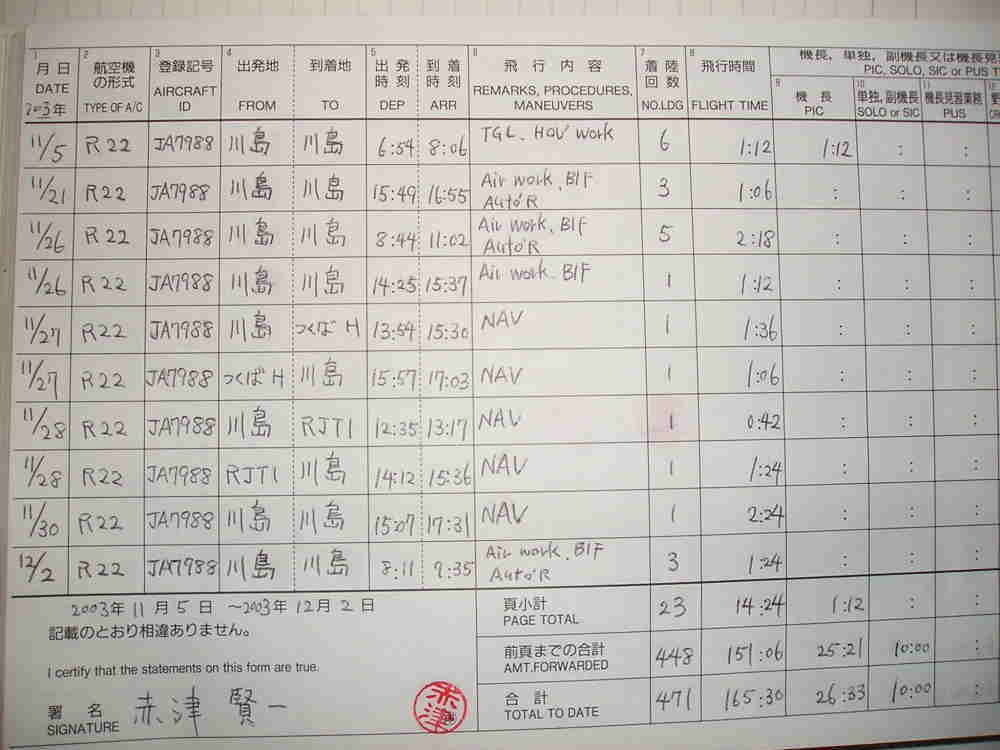 機長, 単独, 副機長又は機長見
PIC, SOLO, SIC or PUS T
1 2 3 4 5 6 7 8
月日 航空機の形式 登録記号 出発地 到着地 出発時刻 到着時刻 飛行内容 着陸回数 飛行時間
DATE TYPE OF A/C AIRCRAFT ID FROM TO DEP ARR REMARKS, PROCEDURES, MANEUVERS NO.LDG FLIGHT TIME
9 機長 10 単独, 副機長 11 機長見習業務
PIC SOLO or SIC PUS
2003年
11/5 R22 JA7988 川島 川島 6:54 8:06 TGL, HOV work 6 1:12 1:12 : :
11/21 R22 JA7988 川島 川島 15:49 16:55 Air work, BIF 3 1:06 : : :
Auto'R
11/26 R22 JA7988 川島 川島 8:44 11:02 Air work, BIF 5 2:18 : : :
Auto'R
11/26 R22 JA7988 川島 川島 14:25 15:37 Air work, BIF 1 1:12 : : :
11/27 R22 JA7988 川島 つくばH 13:54 15:30 NAV 1 1:36 : : :
11/27 R22 JA7988 つくばH 川島 15:57 17:03 NAV 1 1:06 : : :
11/28 R22 JA7988 川島 RJTI 12:35 13:17 NAV 1 0:42 : : :
11/28 R22 JA7988 RJTI 川島 14:12 15:36 NAV 1 1:24 : : :
11/30 R22 JA7988 川島 川島 15:07 17:31 NAV 1 2:24 : : :
12/2 R22 JA7988 川島 川島 8:11 9:35 Air work, BIF 3 1:24 : : :
Auto'R
2003年11月5日 ~2003年12月2日
記載のとおり相違ありません。
I certify that the statements on this form are true.
署名 赤津賢一
SIGNATURE
赤津
頁小計 23 14:24 1:12 : :
PAGE TOTAL
前頁までの合計 448 151:06 25:21 10:00 :
AMT.FORWARDED
合計 471 165:30 26:33 10:00 :
TOTAL TO DATE